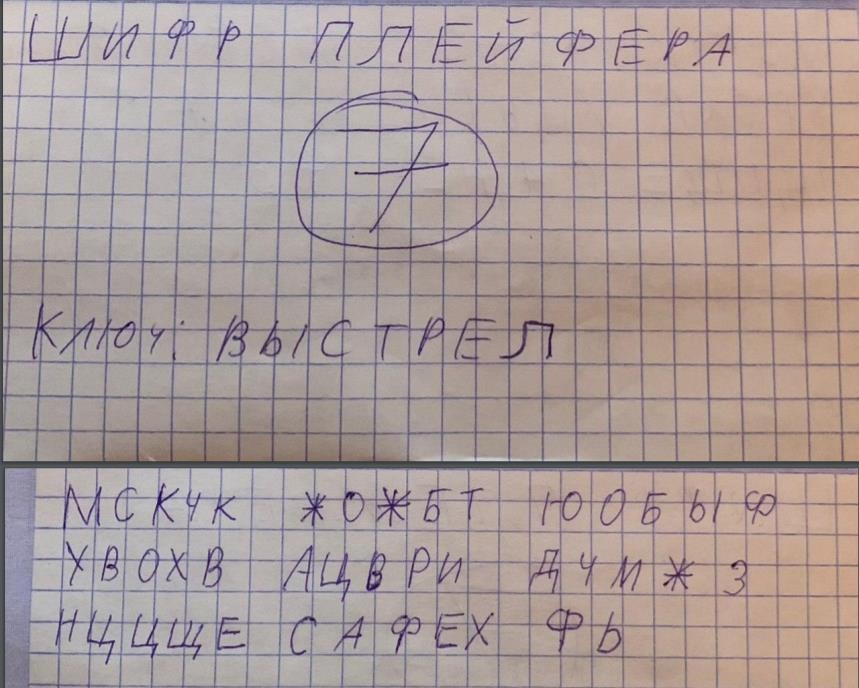 ШИФР ПЛЕЙФЕРА
7
Ключ: ВЫСТРЕЛ
МСКЧК ЖОЖБТ ЮОБЫФ
ХВОХВ АЦВРИ ДЧМЖЗ
НЦЦЩЕ САФЕХ ФЬ